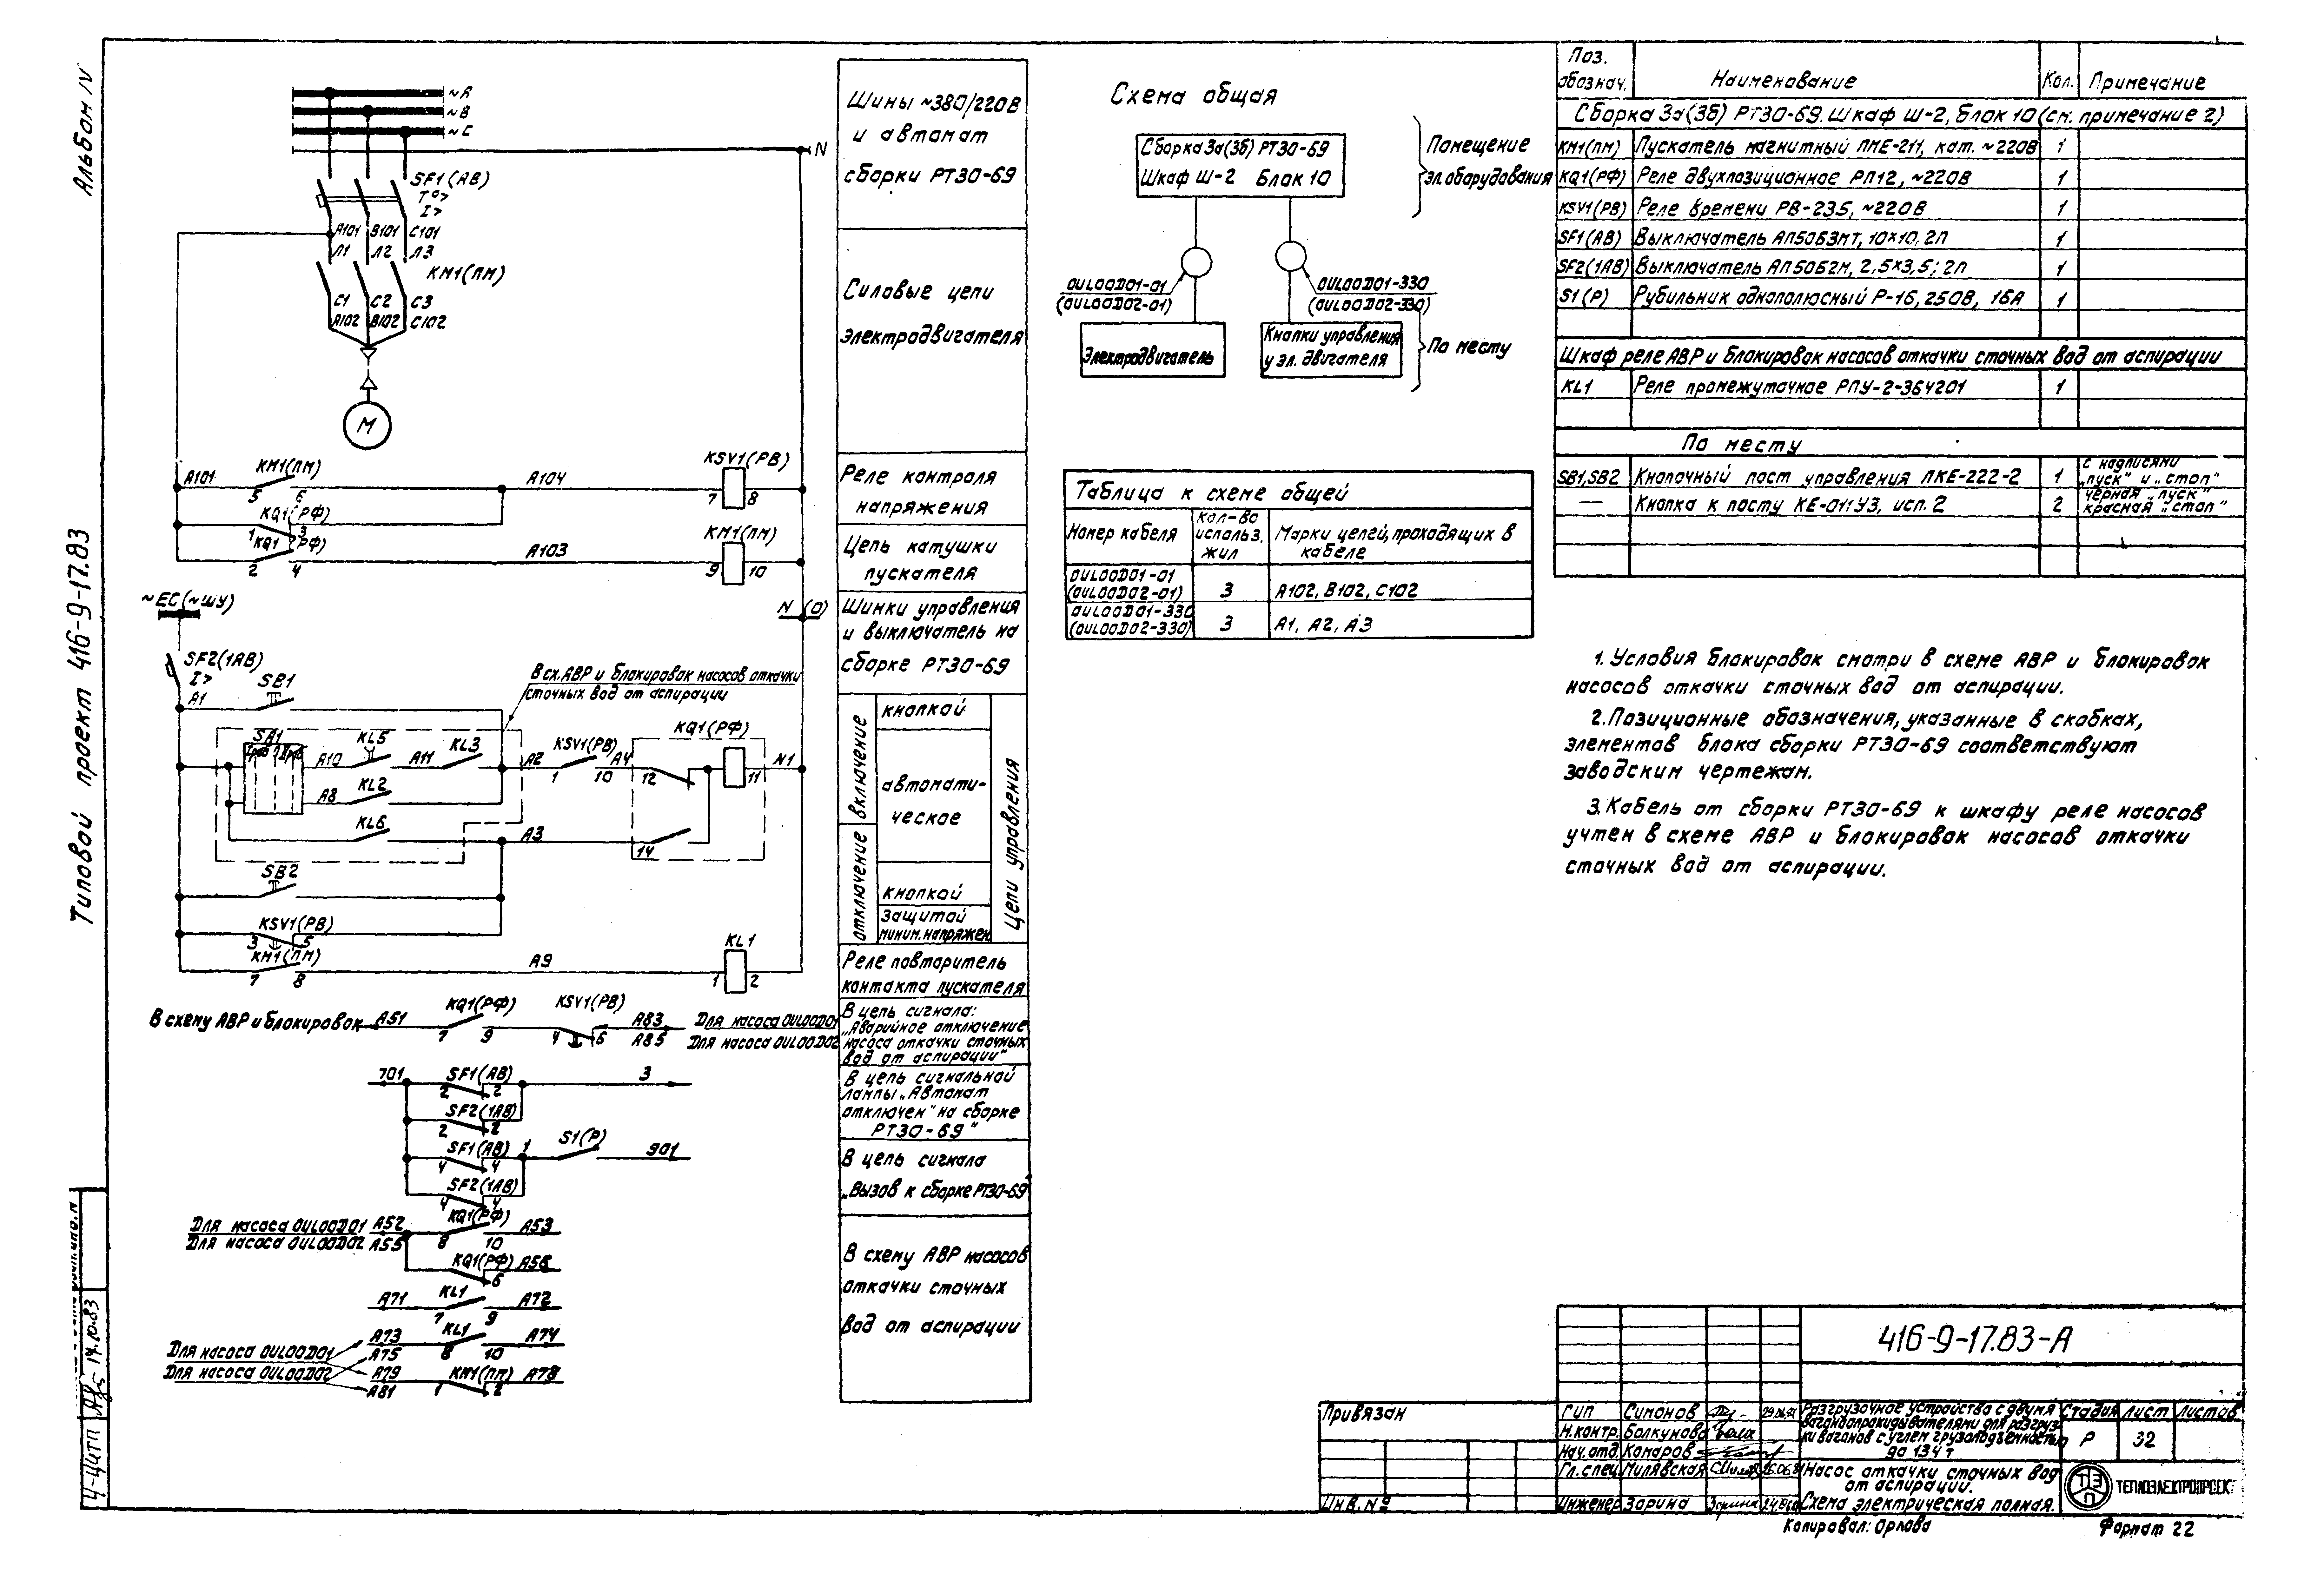 Альбом IV
Типовой проект 416-9-17.83
~A
~B
~C
N
SF1(АВ)
T°>
I>
A101 B101 C101
Л1 Л2 Л3
KM1(ПМ)
C1 C2 C3
A102 B102 C102
M
A101
KM1(ПМ)
5 6
A104
KSV1(РВ)
7 8
KQ1(РФ)
1 3
KQ1(РФ)
2 4
A103
KM1(ПМ)
9 10
~EC(~ШУ)
N (0)
SF2(1АВ)
I>
A1
SB1
В сх. АВР и блокировок насосов откачки
сточных вод от аспирации
SA1
A10
KL5
A11
KL3
A2
KSV1(РВ)
1 10
A4
KQ1(РФ)
12
11
N1
A8
KL2
KL6
A3
14
SB2
KSV1(РВ)
3 5
KM1(ПМ)
7 8
A9
KL1
1 2
В схему АВР и блокировок
A51
KQ1(РФ)
7 9
KSV1(РВ)
4 6
A83
A85
Для насоса 0UL00D01
Для насоса 0UL00D02
701
SF1(АВ)
2 2
3
SF2(1АВ)
2 2
SF1(АВ)
4 4
1
S1(Р)
901
SF2(1АВ)
4 4
Для насоса 0UL00D01 A52
Для насоса 0UL00D02 A55
KQ1(РФ)
8 10
A53
KQ1(РФ)
6
A56
A71
KL1
7 9
A72
Для насоса 0UL00D01
Для насоса 0UL00D02
A73
A75
KL1
8 10
A74
A79
A81
KM1(ПМ)
1 2
A78
Шины ~380/220В
и автомат
сборки РТ30-69
Силовые цепи
электродвигателя
Реле контроля
напряжения
Цепь катушки
пускателя
Шинки управления
и выключатель на
сборке РТ30-69
включение
отключение
кнопкой
автомати-
ческое
кнопкой
Защитой
миним. напряжен.
Цепи управления
Реле повторитель
контакта пускателя
В цепь сигнала:
„Аварийное отключение
насоса откачки сточных
вод от аспирации"
В цепь сигнальной
лампы „Автомат
отключен" на сборке
РТ30-69"
В цепь сигнала
„Вызов к сборке РТ30-69"
В схему АВР насосов
откачки сточных
вод от аспирации
Схема общая
Сборка 3а(3б) РТ30-69
Шкаф Ш-2 Блок 10
Помещение
эл. оборудования
0UL00D01-01
(0UL00D02-01)
0UL00D01-330
(0UL00D02-330)
Электродвигатель
Кнопки управления
у эл. двигателя
По месту
Таблица к схеме общей
Номер кабеля
Кол-во
использ.
жил
Марки цепей, проходящих в
кабеле
0UL00D01-01
(0UL00D02-01) 3 A102, B102, C102
0UL00D01-330
(0UL00D02-330) 3 A1, A2, A3
Поз.
обознач. Наименование Кол. Примечание
Сборка 3а(3б) РТ30-69. Шкаф Ш-2, Блок 10 (см. примечание 2)
KM1(ПМ) Пускатель магнитный ПМЕ-211, кат. ~220В 1
KQ1(РФ) Реле двухпозиционное РП12, ~220В 1
KSV1(РВ) Реле времени РВ-235, ~220В 1
SF1(АВ) Выключатель АП50Б3МТ, 10×10, 2П 1
SF2(1АВ) Выключатель АП50Б2М, 2,5×3,5; 2П 1
S1(Р) Рубильник однополюсный Р-16, 250В, 16А 1
Шкаф реле АВР и блокировок насосов откачки сточных вод от аспирации
KL1 Реле промежуточное РПУ-2-364201 1
По месту
SB1, SB2 Кнопочный пост управления ПКЕ-222-2 1 с надписями „пуск" и „стоп"
— Кнопка к посту КЕ-011У3, исп. 2 2 черная „пуск" красная „стоп"
1. Условия блокировок смотри в схеме АВР и блокировок
насосов откачки сточных вод от аспирации.
2. Позиционные обозначения, указанные в скобках,
элементов блока сборки РТ30-69 соответствуют
заводским чертежам.
3. Кабель от сборки РТ30-69 к шкафу реле насосов
учтен в схеме АВР и блокировок насосов откачки
сточных вод от аспирации.
416-9-17.83-А
Привязан
Инв. №
ГИП Симонов
Н. контр. Болкунова
Нач. отд. Комаров
Гл. спец. Милявская
Инженер Зарина
Разгрузочное устройство с двумя
вагоноопрокидывателями для разгруз-
ки вагонов с углем грузоподъемностью
до 134 т
Стадия Лист Листов
Р 32
Насос откачки сточных вод
от аспирации.
Схема электрическая полная.
ТЭП
ТЕПЛОЭЛЕКТРОПРОЕКТ
Копировал: Орлова
Формат 22
14.10.83
Ч-ЦИТП